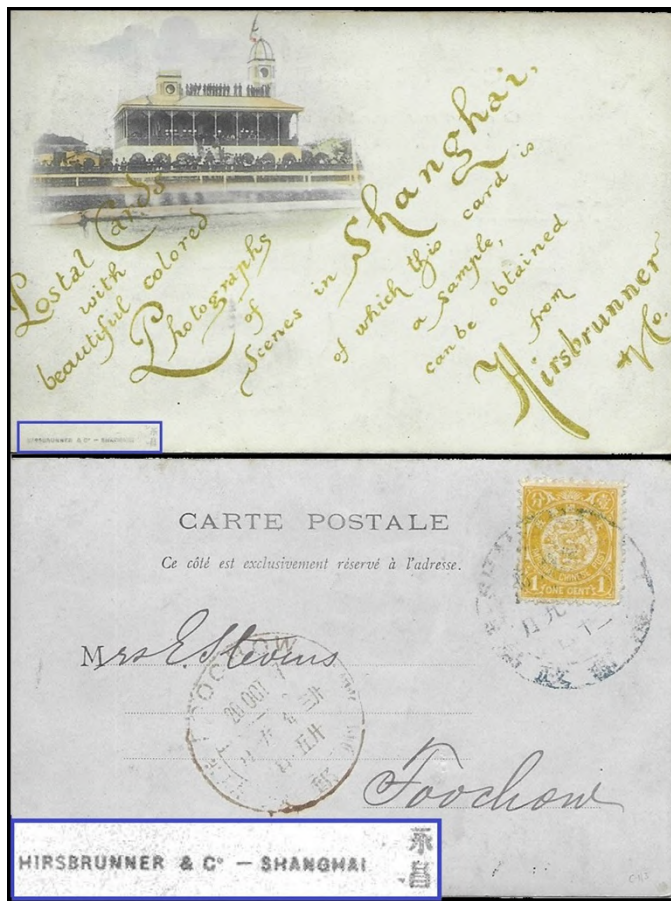 Postal Cards
with
beautiful colored
Photographs
of
Scenes in Shanghai,
of which this card is
a sample,
can be obtained
from
Hirsbrunner
& Co.
HIRSBRUNNER & Cº – SHANGHAI
CARTE POSTALE
Ce côté est exclusivement réservé à l'adresse.
1 ONE CENT 1
Mrs E. Stevens
FOOCHOW
20 OCT
Foochow
HIRSBRUNNER & Cº – SHANGHAI